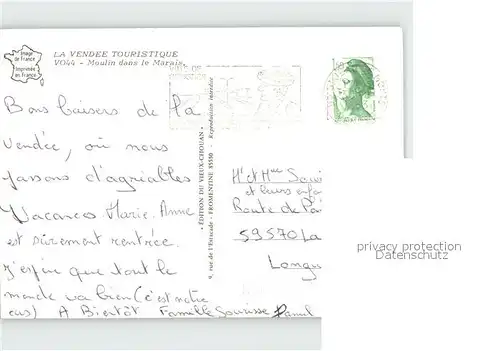 Image
de France
Imprimée
en France
LA VENDEE TOURISTIQUE
VO44 - Moulin dans le Marais
Bons baisers de la
Vendée, où nous
passons d'agréables
Vacances Marie. Anne
est sûrement rentrée.
J'espère que tout le
monde va bien (c'est notre
cas) A Bientôt Famille Sourisse
« EDITION DU VIEUX-CHOUAN »
9, rue de l'Estacade - FROMENTINE 85550 - Reproduction interdite
Mr et Mme Souri
et leurs enfa
Route de
59570 La
Longu
privacy protection
Dathatic.com